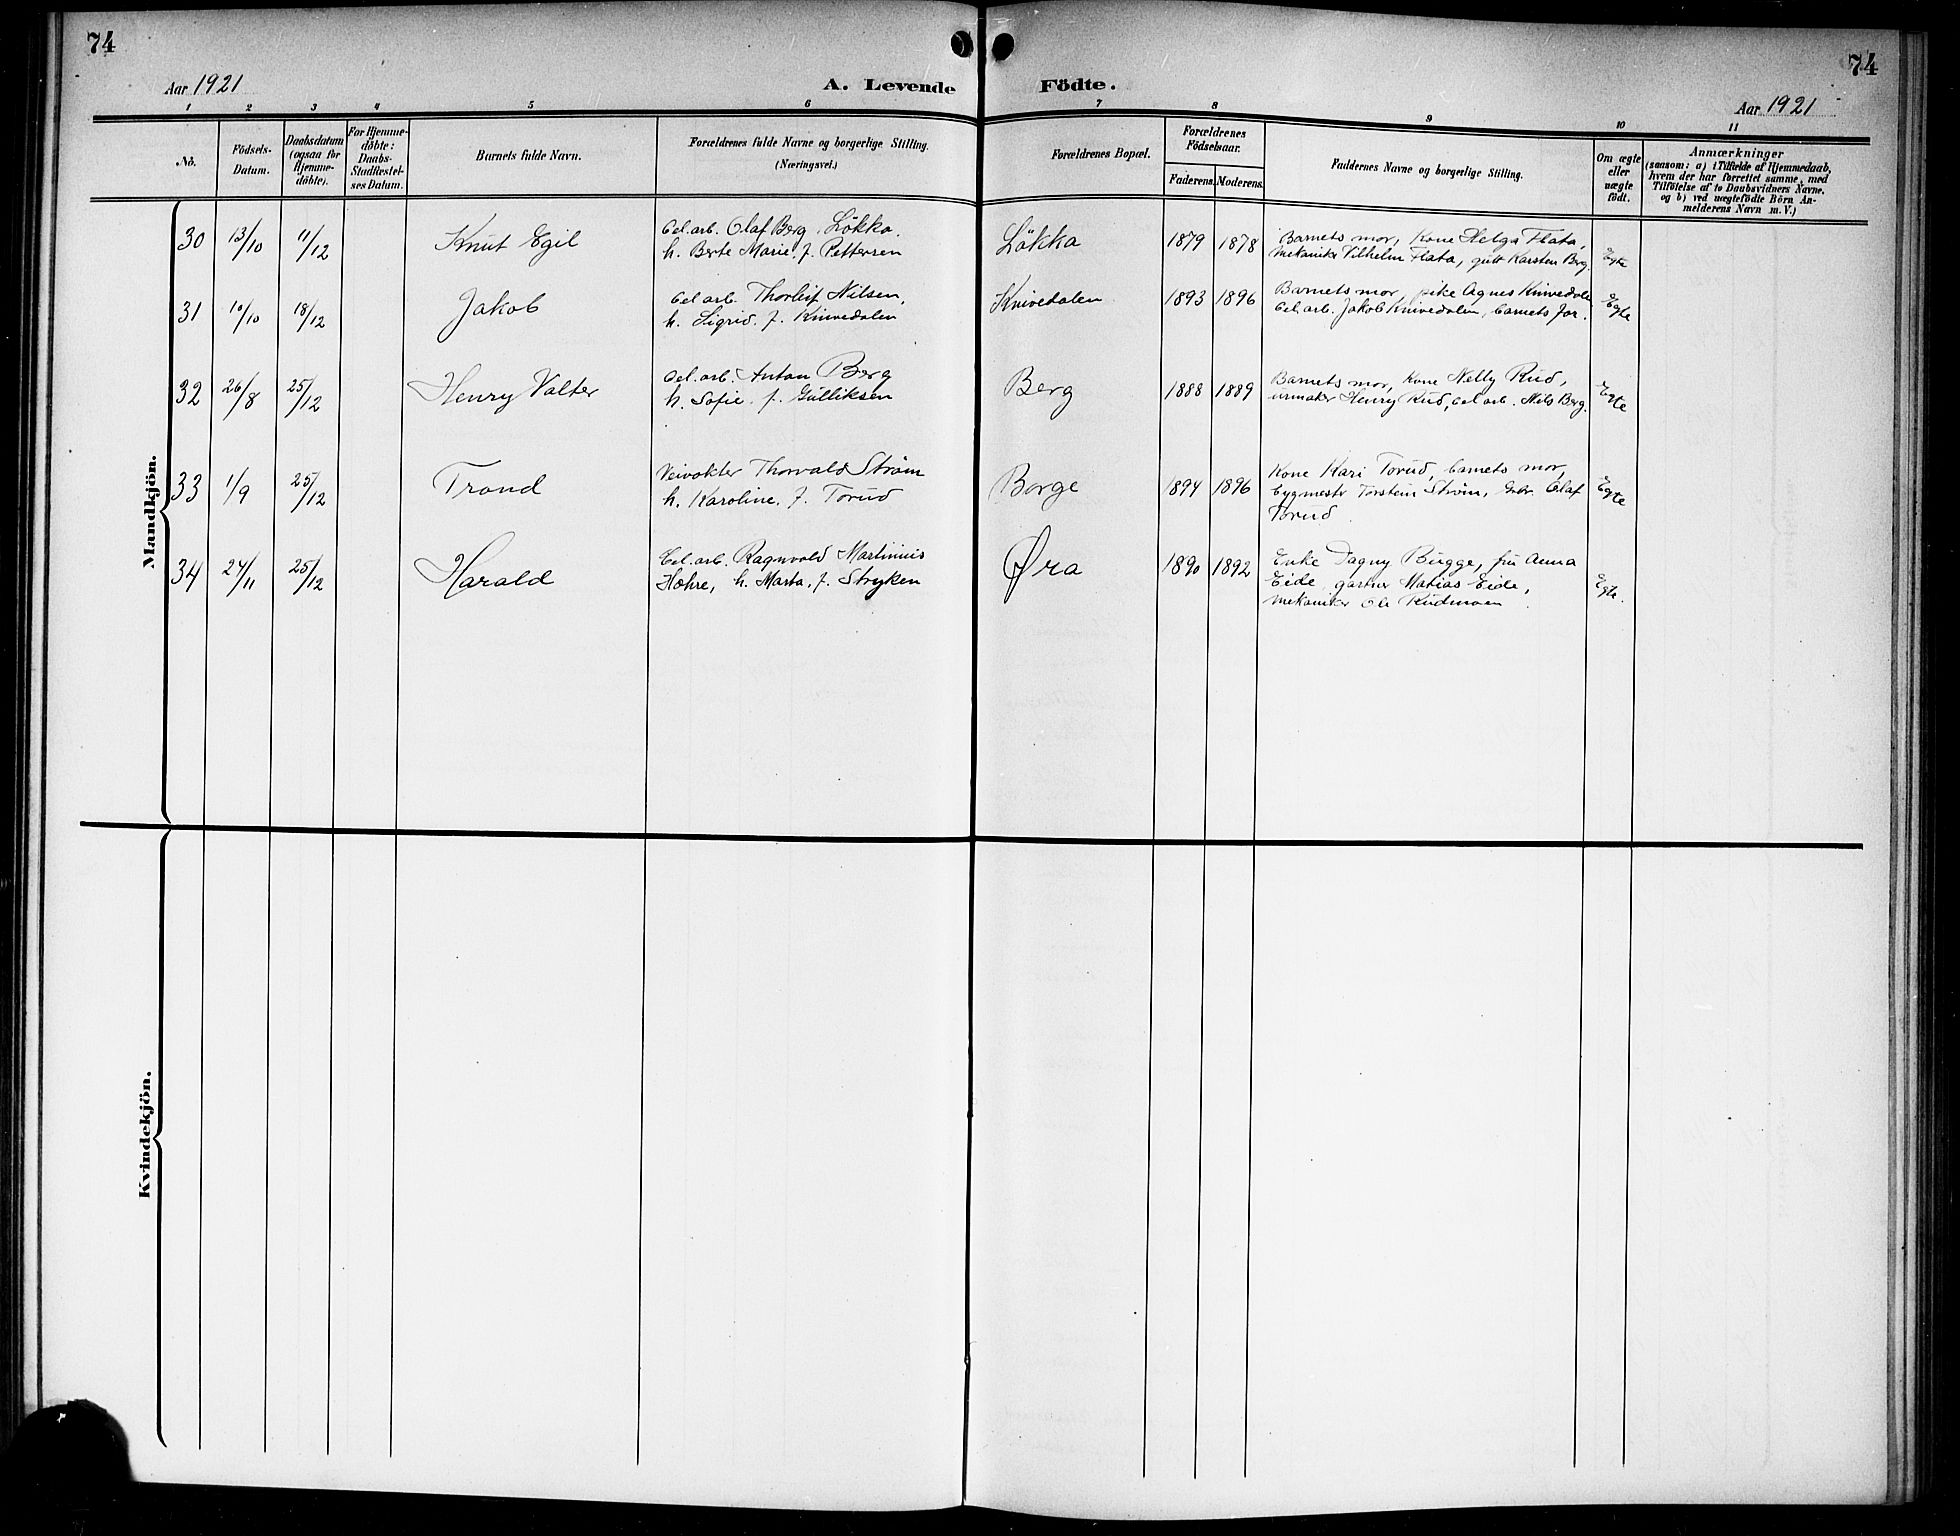 74
74
Aar 1921
A. Levende Födte.
Aar 1921
1 2 3 4 5 6 7 8 9 10 11
No.
Födsels-
Datum.
Daabsdatum
(ogsaa for
Hjemme-
döbte).
For Hjemme-
döbte:
Daabs-
Stadfæstel-
ses Datum.
Barnets fulde Navn.
Forældrenes fulde Navne og borgerlige Stilling.
(Næringsvei.)
Forældrenes Bopæl.
Forældrenes
Födselsaar.
Faderens. Moderens.
Faddernes Navne og borgerlige Stilling.
Om ægte
eller
uægte
födt.
Anmærkninger
(saasom: a) i Tilfælde af Hjemmedaab,
hvem der har forrettet samme, med
Tilföielse af to Daabsvidners Navne.
og b) ved uægtefödte Börn An-
melderens Navn m. V.)
Mandkjön.
30 13/10 11/12 Knut Egil
Cel. arb. Olaf Berg, Lökka.
h. Berte Marie, f. Pettersen
Lökka 1879 1878
Barnets mor, Kone Helga Flata,
mekaniker Vilhelm Flata, gutt Karsten Berg.
Egte
31 10/10 18/12 Jakob
Cel. arb. Thorleif Nilsen,
h. Sigrid. f. Knivedalen
Knivedalen 1893 1896
Barnets mor, pike Agnes Knivedalen
Cel. arb. Jakob Knivedalen, barnets far.
Egte
32 26/8 25/12 Henry Valter
Cel. arb. Anton Berg
h. Sofie. f. Gulliksen
Berg 1888 1889
Barnets mor, Kone Nelly Rud,
urmaker Henry Rud, Cel. arb. Nils Berg.
Egte
33 1/9 25/12 Trond
Veivokter Thorvald Strøm
h. Karoline. f. Torud
Borge 1894 1896
Kone Kari Torud, barnets mor,
bygmestr Torstein Strøm, Gbr. Olaf
Torud
Egte
34 24/11 25/12 Harald
Cel. arb. Ragnvald Martinius
Hohre, h. Marta, f. Stryken
Øra 1890 1892
Enke Dagny Bugge, fru Anna
Eide, gartner Matias Eide,
mekaniker Ole Rudmoen
Egte.
Kvindekjön.